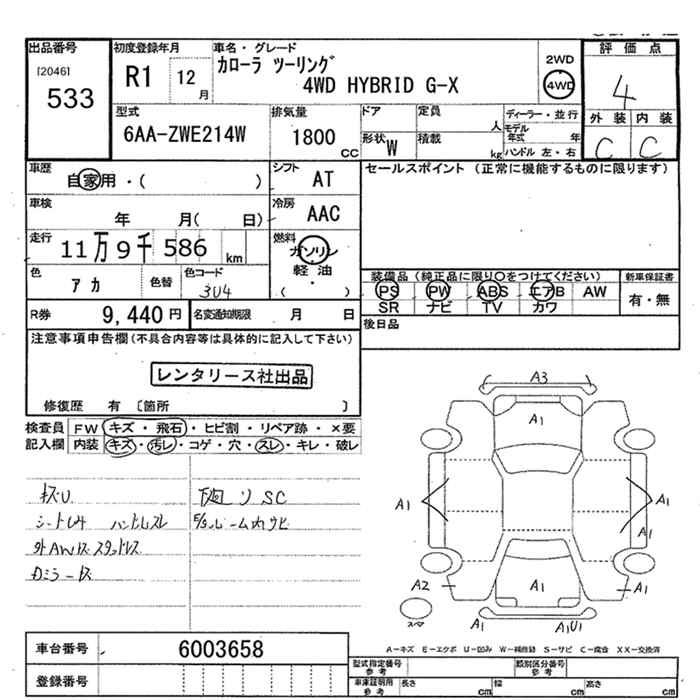 出品番号
[2046]
533
初度登録年月
R1 12月
車名・グレード
カローラ ツーリング
4WD HYBRID G-X
2WD
4WD
評価点
4
外装 内装
C C
型式
6AA-ZWE214W
排気量
1800 CC
ドア
定員 人
形状 W
積載 kg
ディーラー・並行
モデル年式 年
ハンドル 左・右
車歴
自家用・( )
シフト AT
セールスポイント (正常に機能するものに限ります)
車検
年 月( 日)
冷房 AAC
走行
11万9千586 km
燃料
ガソリン
軽油
( ・ )
色 アカ
色替
色コード 3U4
装備品 (純正品に限り〇をつけてください)
新車保証書
PS PW ABS エアB AW
有・無
SR ナビ TV カワ
R券 9,440円
名変通知期限 月 日
後日品
注意事項申告欄(不具合内容等は具体的に記入して下さい)
レンタリース社出品
修復歴 有 〔箇所 〕
検査員記入欄
FW キズ・飛石・ヒビ割・リペア跡・×要
内装 キズ・汚レ・コゲ・穴・スレ・キレ・破レ
キズU
下廻リ SC
シートしみ ハンドルスレ
F/Sフレーム内サビ
外AWキズ スタッドレス
Dミラーキズ
A3
A1
A1
A1
A1
A2
A1
A1
A1
A1U1
スペア
A-キズ E-エクボ U-凹み W-補修跡 S-サビ C-腐食 XX-交換済
車台番号 6003658
登録番号
型式指定番号 参考
類別区分番号 参考
車庫証明用 参考
長さ cm 幅 cm 高さ cm